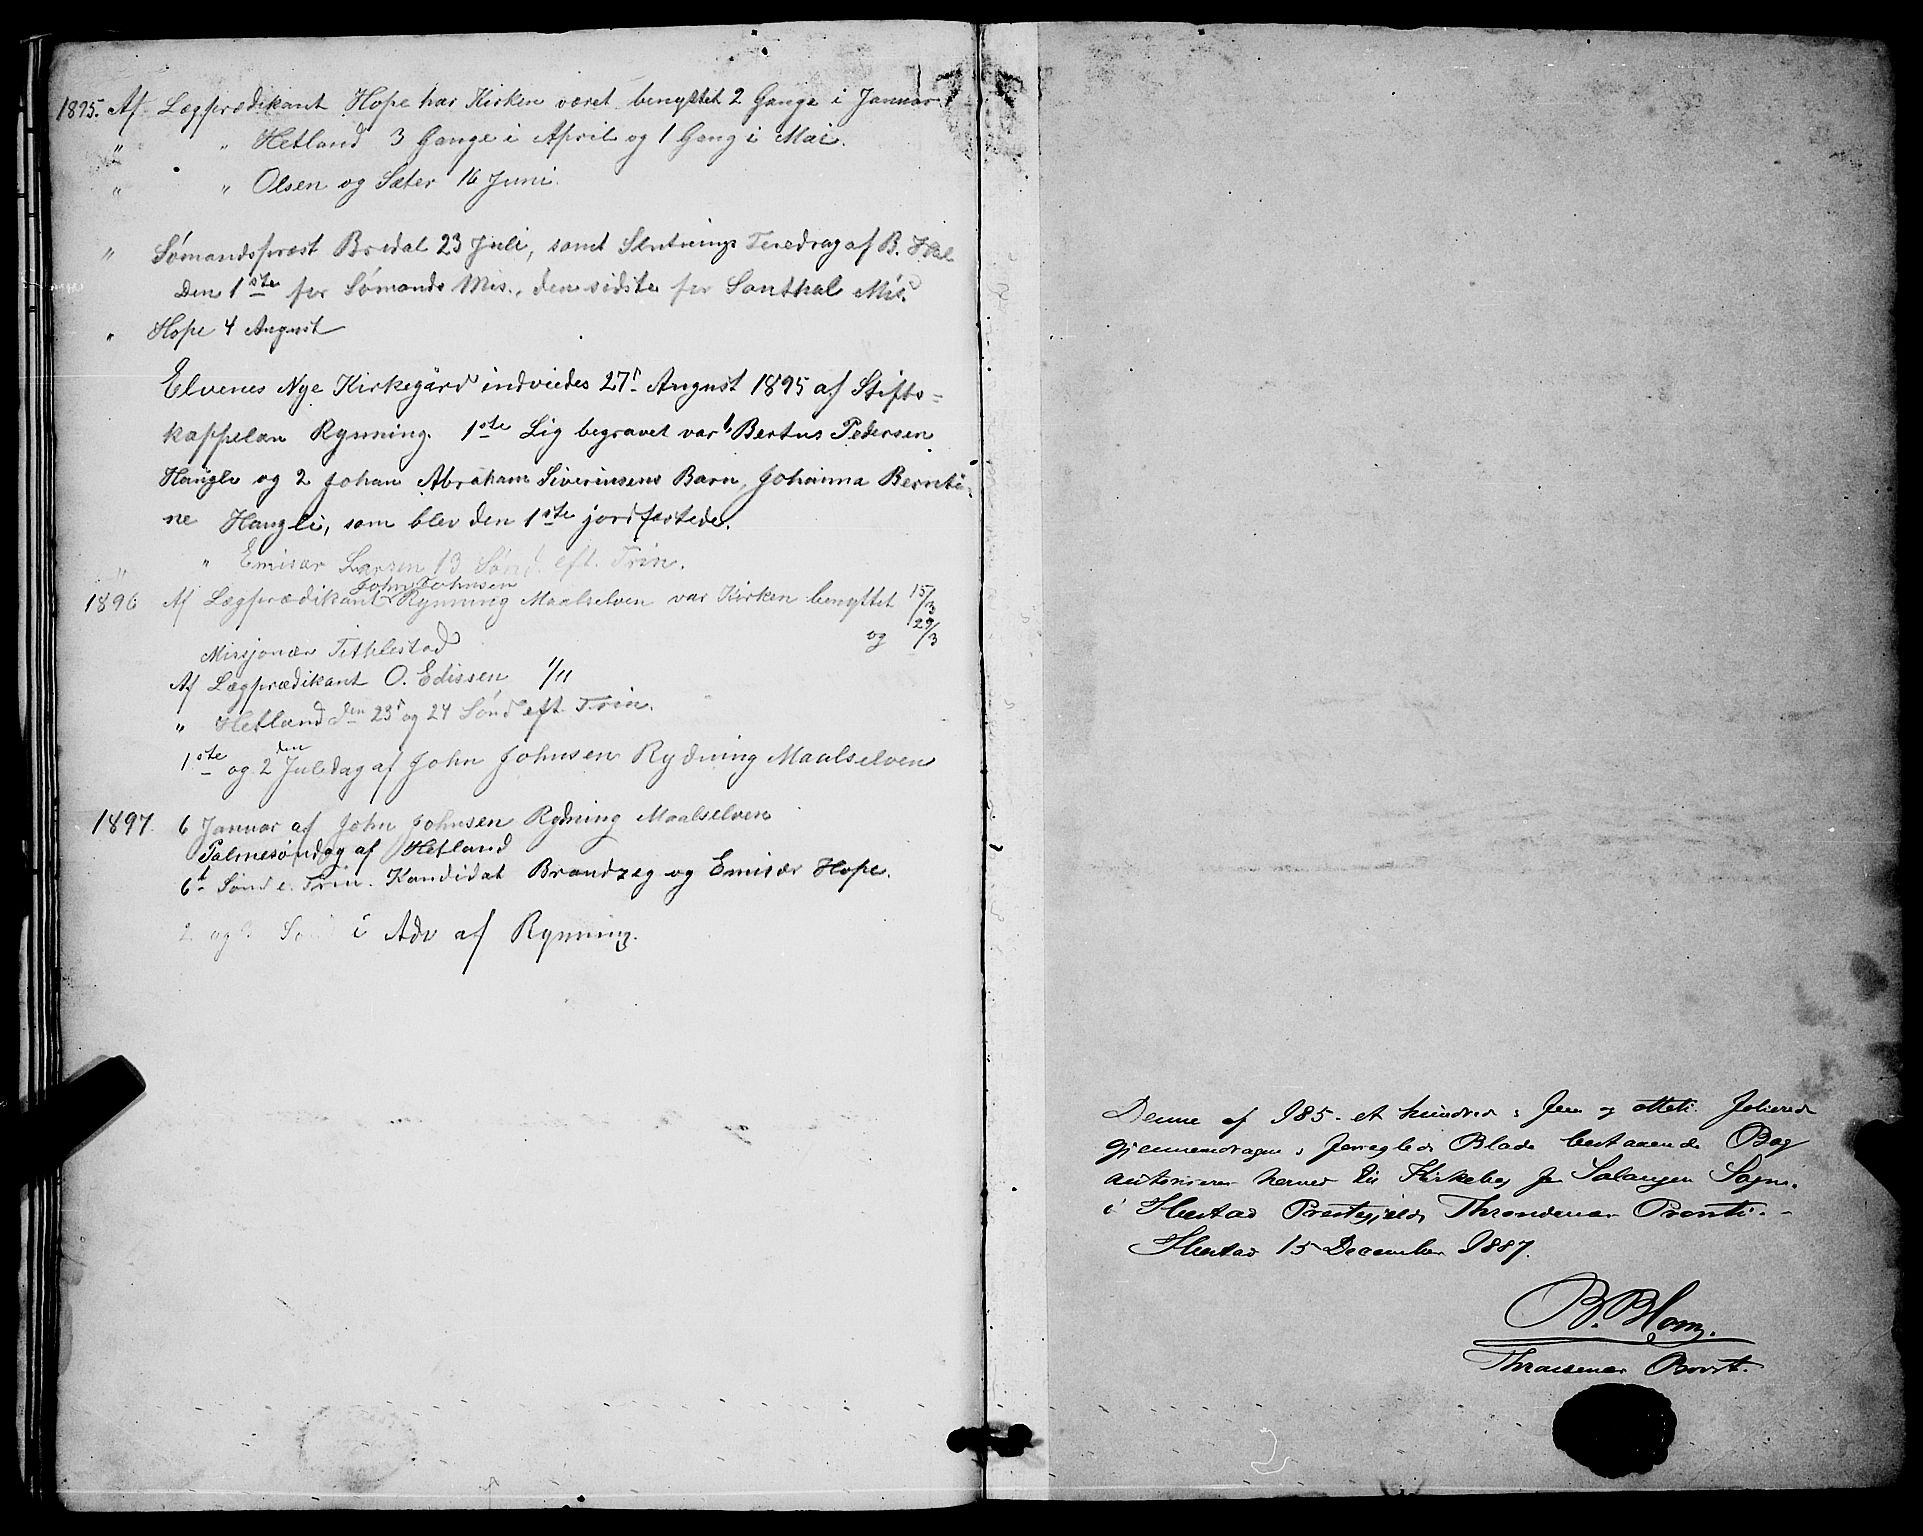 1895. Af Lægprædikant Hope har Kirken været benyttet 2 Gange i Januar
" " Hetland 3 Gange i April og 1 Gang i Mai.
" " Olsen og Sæter 16 Juni.
" Sømandsprest Bredal 23 Juli, samt Slutnings Foredrag af B.
Den 1ste for Sømands Mis., den sidste for Santhal Mis.
" Hope 4 August
Elvenes Nye Kirkegård indviedes 27de August 1895 af Stifts-
kappelan Rynning. 1ste Lig begravet var 1 Bertus Pedersen
Haugli og 2 Johan Abraham Siverinsens Barn, Johanna Bernti-
ne Haugli, som blev den 1ste jordfæstede.
" " Emisær Larsen 13 Sønd. eft. Trin.
1896 Af Lægprædikant John Johnsen Rynning Maalselven var Kirken benyttet 15/3
og 29/3
Missjonær Tithlestad
Af Lægprædikant O. Edissen 1/11
" Hetland den 23de og 24 Sønd eft. Trin.
1ste og 2den Juledag af John Johnsen Rydning Maalselven
1897. 6 Januar af John Johnsen Rydning Maalselven
Palmesøndag af Hetland
6te Sønd e. Trin. Kandidat Brandzeg og Emisær Hope.
2. og 3 Sønd i Adv af Rynning.
Denne af 185 - et hundrede fem og otteti folierede
gjennemdragne, forseglede Blade bestaaende Bog
autoriseres herved til Kirkebog for Salangen Sogn
i Ibestad Præstegjeld, Throndenes Provsti. -
Ibestad 15 December 1887.
B. Blom.
Throndenes Provsti.